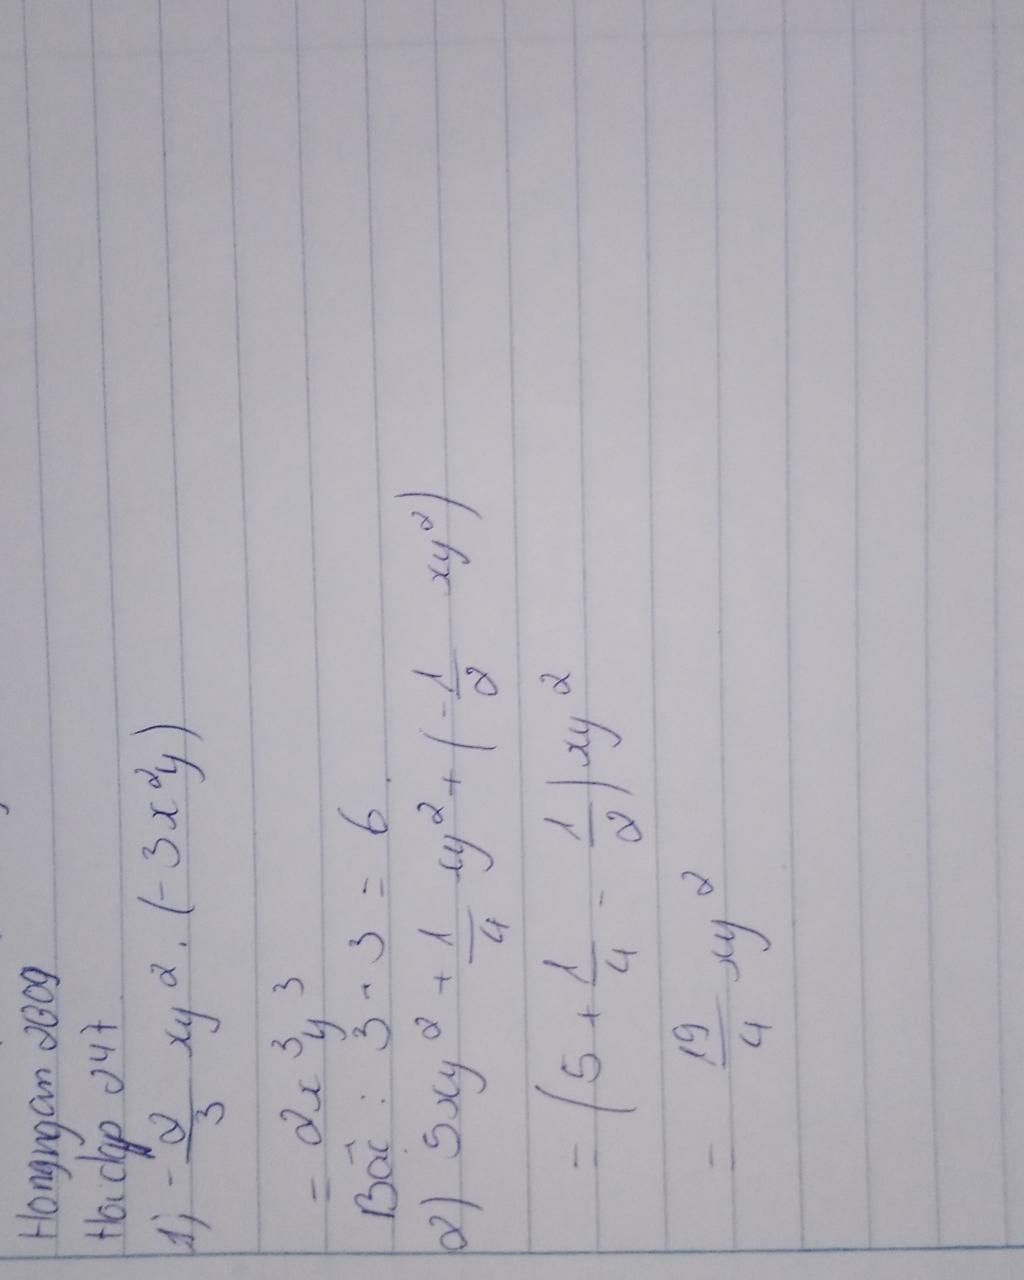 Hongngan 2009
Hoidap 247
1) -2/3 xy². (-3x²y)
= 2x³y³
Bâc : 3+3 = 6
2) 5xy² + 1/4 xy² + (-1/2 xy²)
= (5 + 1/4 - 1/2) xy²
= 19/4 xy²